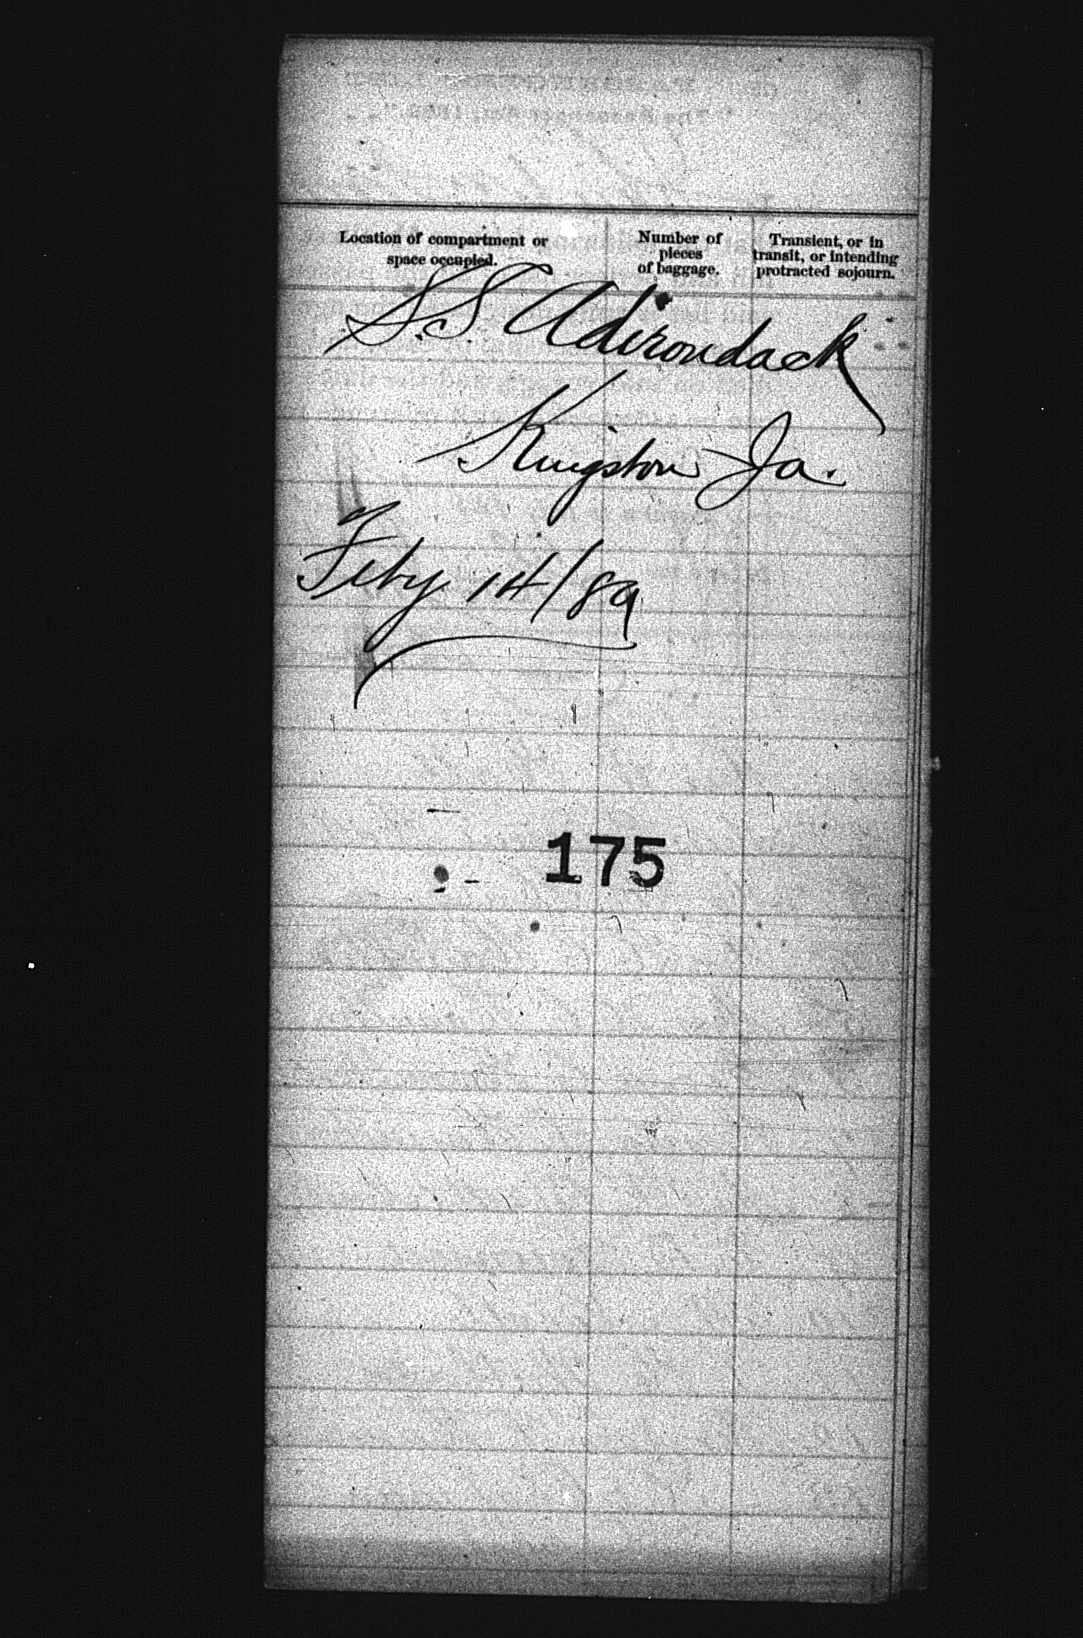 Location of compartment or
space occupied.
Number of
pieces
of baggage.
Transient, or in
transit, or intending
protracted sojourn.
S.S. Adirondack
Kingston Ja.
Feby 14/89
175